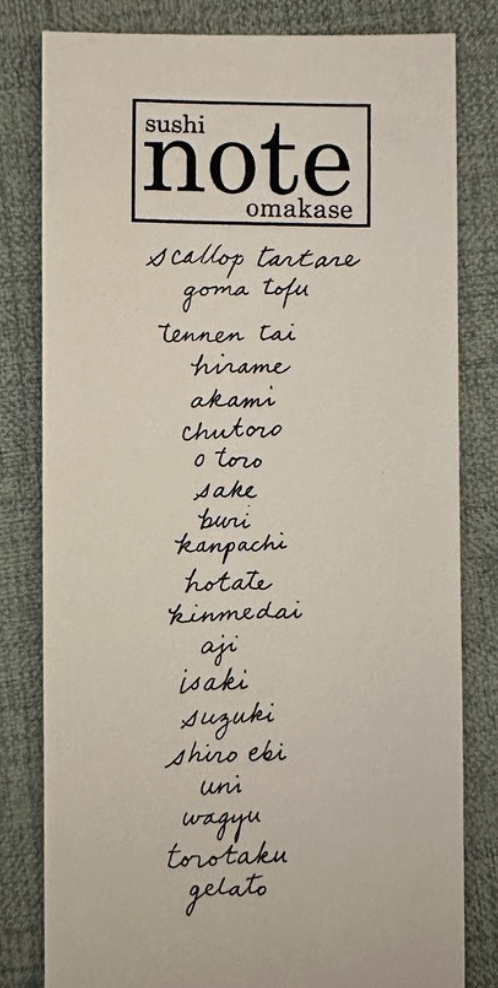 sushi
note
omakase
scallop tartare
goma tofu
tennen tai
hirame
akami
chutoro
o toro
sake
buri
kanpachi
hotate
kinmedai
aji
isaki
suzuki
shiro ebi
uni
wagyu
torotaku
gelato